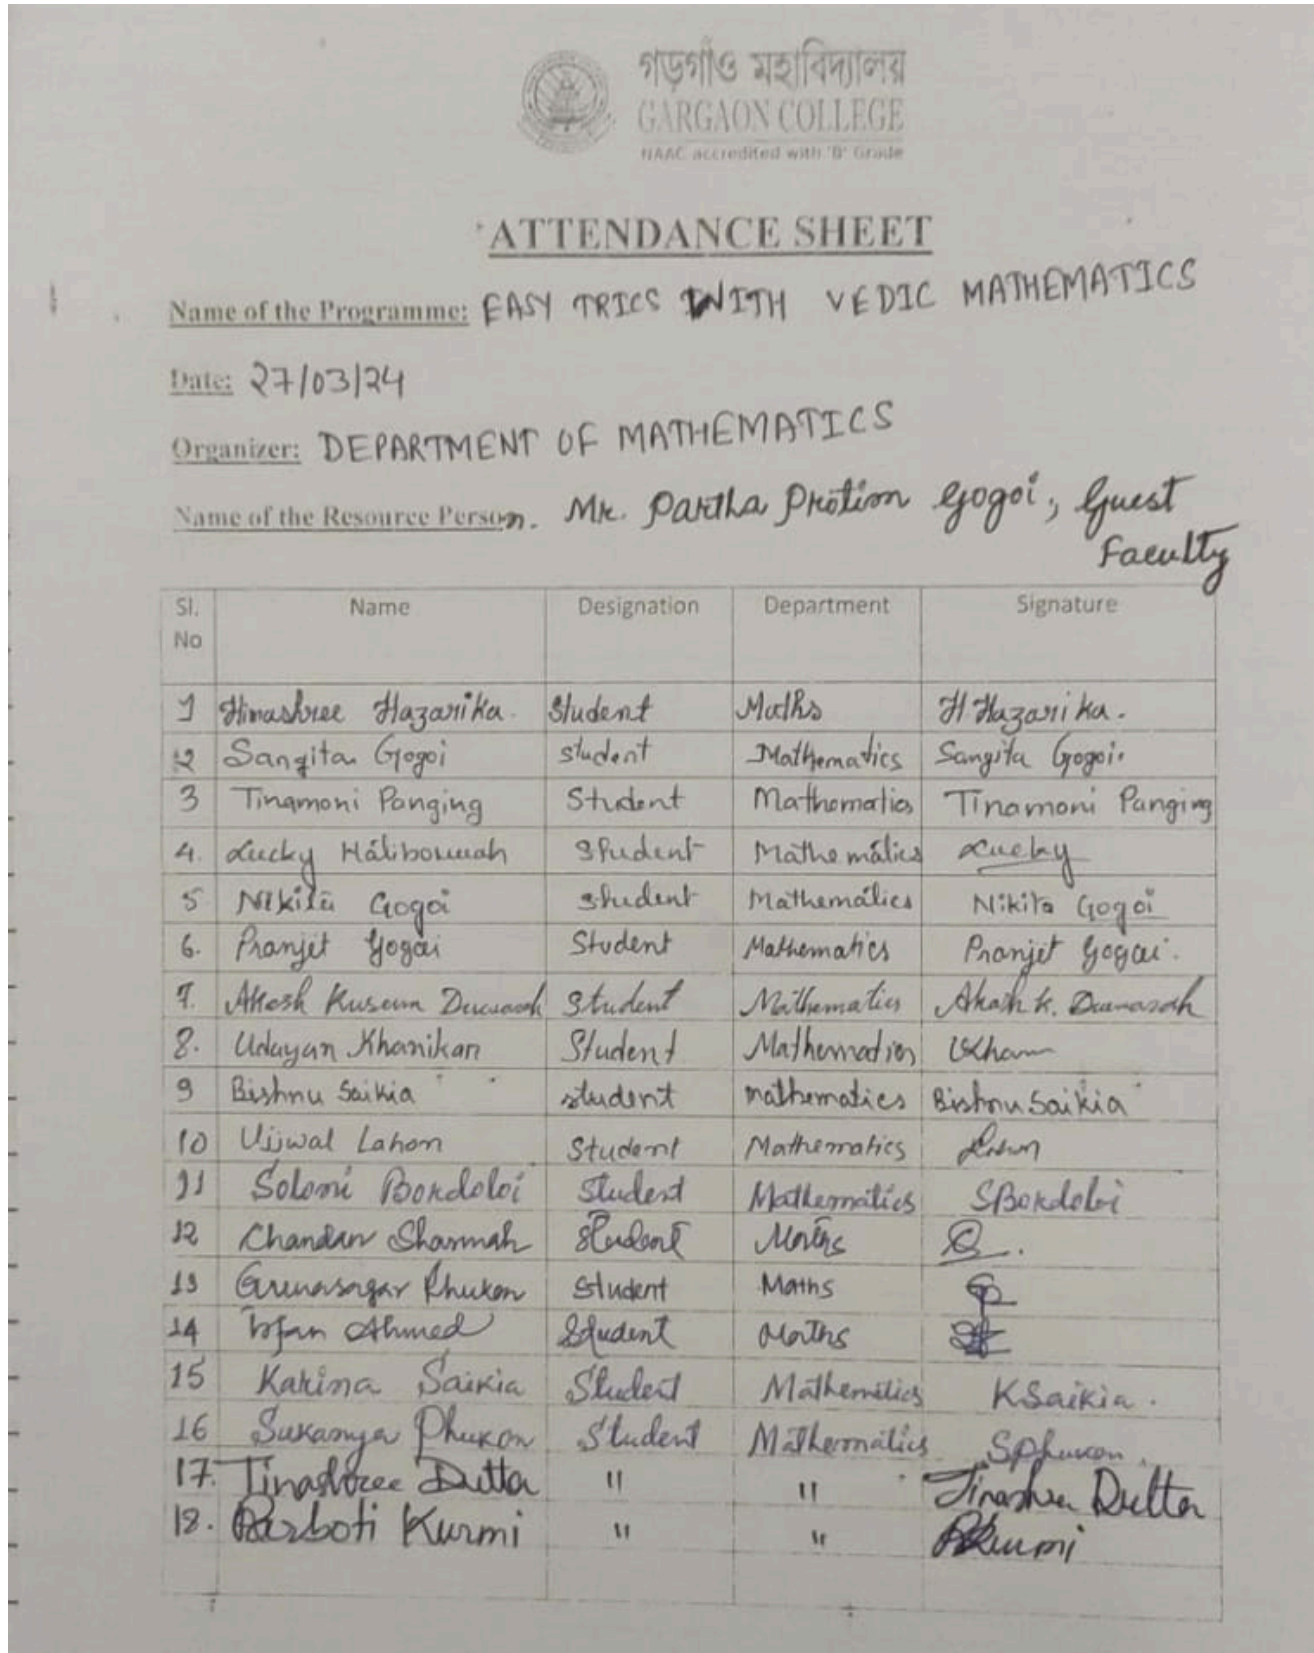 গড়গাঁও মহাবিদ্যালয়
GARGAON COLLEGE
NAAC accredited with 'B' Grade
ATTENDANCE SHEET
Name of the Programme: EASY TRICS WITH VEDIC MATHEMATICS
Date: 27/03/24
Organizer: DEPARTMENT OF MATHEMATICS
Name of the Resource Person. Mr. Partha Protim Gogoi, Guest
Faculty
Sl. No Name Designation Department Signature
1 Himashree Hazarika. Student Maths H Hazarika.
2 Sangita Gogoi student Mathematics Sangita Gogoi.
3 Tinamoni Panging Student Mathematics Tinamoni Panging
4. Lucky Hatiboruah Student Mathematics Lucky
5 Nikita Gogoi student Mathematics Nikita Gogoi
6. Pranjit Gogoi Student Mathematics Pranjit Gogoi.
7. Akash Kusum Student Mathematics Akash K.
8. Udayan Khanikar Student Mathematics
9 Bishnu Saikia student mathematics Bishnu Saikia
10 Ujjwal Lahon Student Mathematics
11 Solomi Bordoloi Student Mathematics SBordoloi
12 Chandan Sharmah Student Maths
13 Gunasagar Phukon Student Maths
14 Irfan Ahmed Student Maths
15 Karina Saikia Student Mathematics KSaikia.
16 Sukanya Phukon Student Mathematics SPhukon.
17. Tinashree Dutta " " Tinashree Dutta
18. Parboti Kurmi " " PKurmi